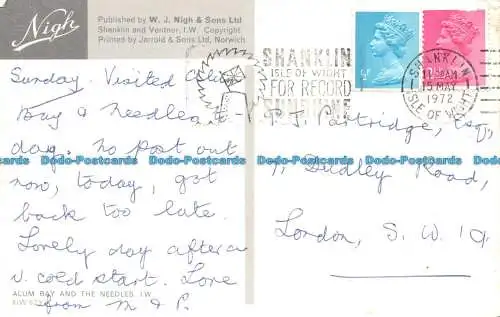 Nigh
Published by W. J. Nigh & Sons Ltd
Shanklin and Ventnor, I.W. Copyright
Printed by Jarrold & Sons Ltd, Norwich
SHANKLIN
ISLE OF WIGHT
FOR RECORD
SUNSHINE
SHANKLIN
ISLE OF WIGHT
15 MAY
1972
Sunday. Visited Alum
Bay & Needles
day. No post out
now, today, got
back too late.
Lovely day after a
v. cold start. Love
from M & P.
P.J. Partridge, Esq,
Dudley Road,
London, S.W. 19.
ALUM BAY AND THE NEEDLES I.W.
Dodo-Postcards Dodo-Postcards Dodo-Postcards Dodo-Postcards